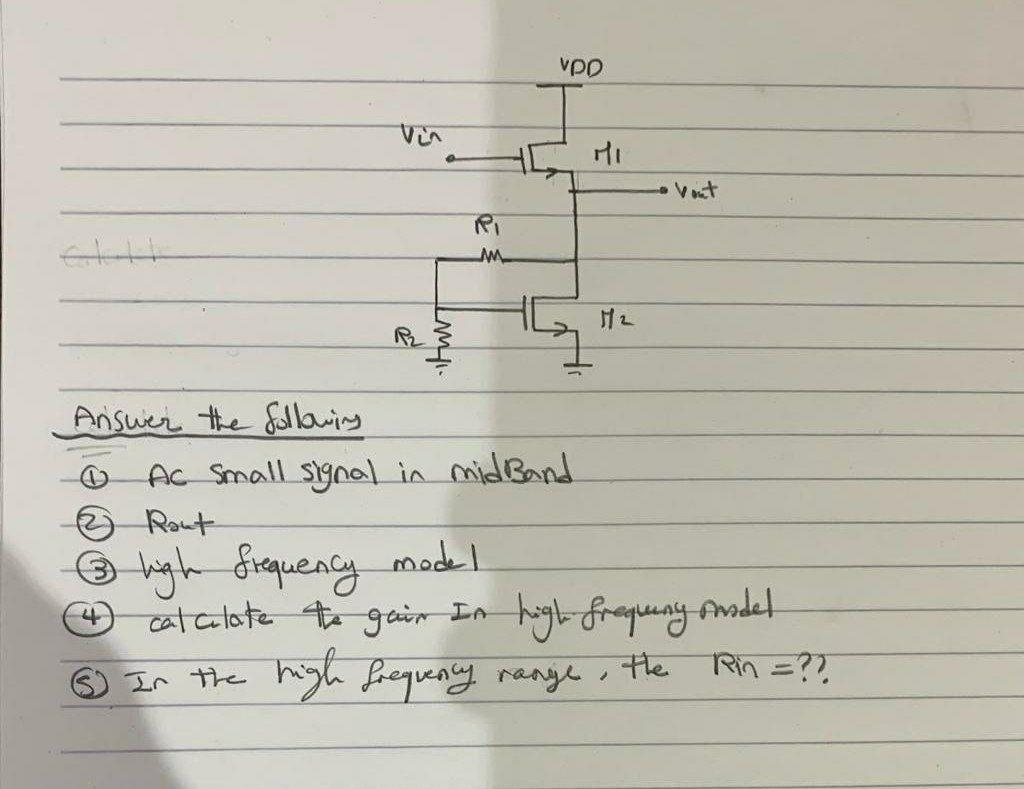 VDD
Vin
M1
Vout
R1
Calculate
R2
M2
Answer the following
① AC small signal in midBand
② Rout
③ high frequency model
④ calculate the gain In high frequency model
⑤ In the high frequency range, the Rin =??